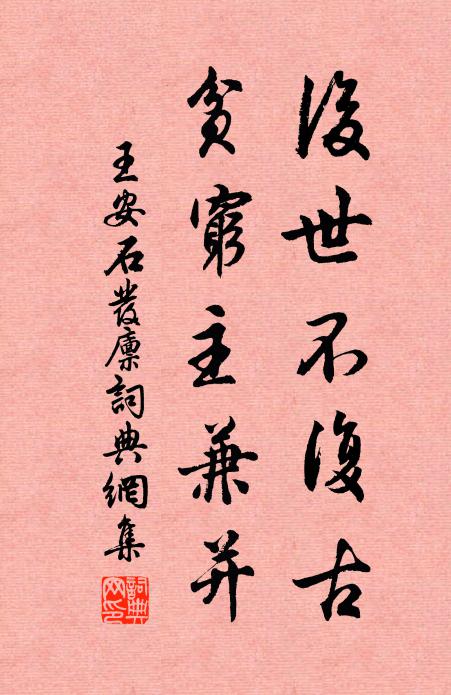 後世不復古
貧窮主兼并
王安石發廩詞典網集
詞典
网印